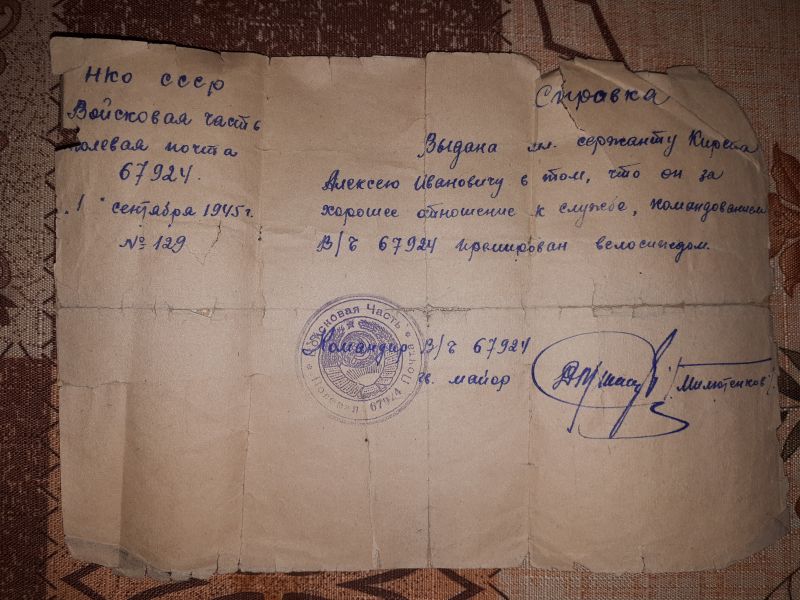 НКО СССР
Войсковая часть
полевая почта
67924.
"1" сентября 1945 г.
№ 129
Справка
Выдана мл. сержанту
Алексею Ивановичу в том, что он за
хорошее отношение к службе, командованием
В/Ч 67924 премирован велосипедом.
Командир В/Ч 67924
гв. майор
/Милютенков/
Войсковая Часть • Полевая Почта • 67924